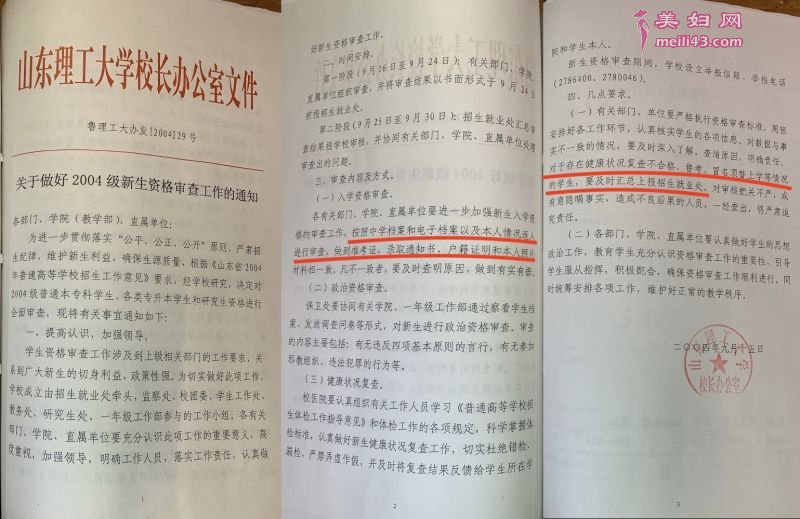 山东理工大学校长办公室文件
鲁理工大办发[2004]29号
关于做好2004级新生资格审查工作的通知
各部门、学院(教学部)、直属单位:
为进一步贯彻落实“公平、公正、公开”原则,严肃招
生纪律,维护新生利益,确保生源质量,根据《山东省2004
年普通高等学校招生工作意见》要求,经学校研究,决定对
2004级普通本专科学生、各类专升本学生和研究生资格进行
全面审查,现将有关事宜通知如下:
一、提高认识,加强领导。
学生资格审查工作涉及到上级相关部门的工作要求,关
系到广大新生的切身利益,政策性强。为切实做好此项工作,
学校成立由招生就业处牵头,监察处、校团委、学生工作处、
教务处、研究生处、一年级工作部参与的工作小组。各有关
部门、学院、直属单位要充分认识此项工作的重要意义,高
度重视,加强领导,明确工作人员,落实工作责任,认真做
1
好新生资格审查工作。
二、时间安排。
第一阶段(9月16日至9月24日):有关部门、学院、
直属单位组织审查,并将审查结果以书面形式于9月24日
前报招生就业处。
第二阶段(9月25日至9月30日):招生就业处汇总审
查结果报学校审核,并协同有关部门、学院、直属单位处理
审查出的问题。
三、审查内容及方式。
(一)入学资格审查。
各有关部门、学院、直属单位要进一步加强新生入学资
格的审查工作,按照中学档案和电子档案以及本人情况逐人
进行审查,做到准考证、录取通知书、户籍证明和本人照片
材料相一致,凡不一致者,要及时查明原因,做到实有措。
(二)政治资格审查。
保卫处要协同有关学院、一年级工作部通过察看学生档
案、发放调查问卷等形式,对新生进行政治资格审查。审查
的内容主要包括:有无违反四项基本原则的言行,有无参加
邪教组织、违法犯罪的行为等。
(三)健康状况复查。
校医院要认真组织有关工作人员学习《普通高等学校招
生体检工作指导意见》和体检工作的各项规定,科学掌握体
检标准,认真做好新生健康状况复查工作,切实杜绝错检、
漏检,严禁弄虚作假,并及时将复查结果反馈给学生所在学
2
院和学生本人。
新生资格审查期间,学校设立举报信箱、举报电话
(2786400、2780046)。
四、几点要求。
(一)有关部门、单位要严格执行资格审查标准,周密
安排好各工作环节,认真核实学生的各项信息。对数据与事
实不一致的情况,要及时深入了解,查清原因,明确责任。
对于存在健康状况复查不合格、替考、冒名顶替上学等情况
的学生,要及时汇总上报招生就业处。对审核把关不严,或
有意隐瞒事实,造成不良后果的人员,一经查出,将严肃追
究责任。
(二)各部门、学院、直属单位要认真做好学生的思想
政治工作,教育学生充分认识资格审查工作的重要性,引导
学生服从指挥,积极配合,确保资格审查工作顺利进行。同
时统筹安排各项工作,维护好正常的教学秩序。
二〇〇四年九月十五日
山东理工大学
校长办公室
3
美妇网
meili43.com